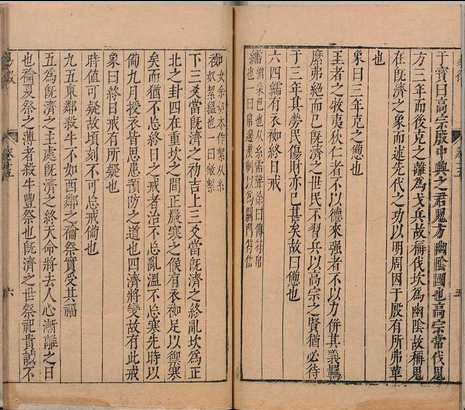 于寶曰高宗殷中興之君鬼方幽陰國也高宗常伐鬼
方三年而後克之離為戈兵故稱伐坎為幽陰故稱鬼
在既濟之象而述先代之功以明周因于殷有所弗革
也
象曰三年克之憊也
王者之牧夷狄仁者不以德來彊者不以力併其義羈
縻弗絕而已既濟之世民不習兵以高宗之賢猶必待
于三年其勞民傷財亦已甚矣故曰憊也
六四繻有衣袽終日戒
下三爻當既濟之初吉上三爻當既濟之終亂坎為正
北之卦四在重坎之間正嚴寒之候有衣袽足以禦寒
矣而猶不忘終日之戒者治不忘亂溫不忘寒先時以
備九月授衣皆思患預防之道也四濟將變故有此戒
象曰終日戒有所疑也
時值可疑故頃刻不可忘戒備也
九五東鄰殺牛不如西鄰之禴祭實受其福
五為既濟之主處既濟之終天命將去人心漸離之日
也禴夏祭之薄者殺牛豐祭也既濟之世祭祀貴誠不
六